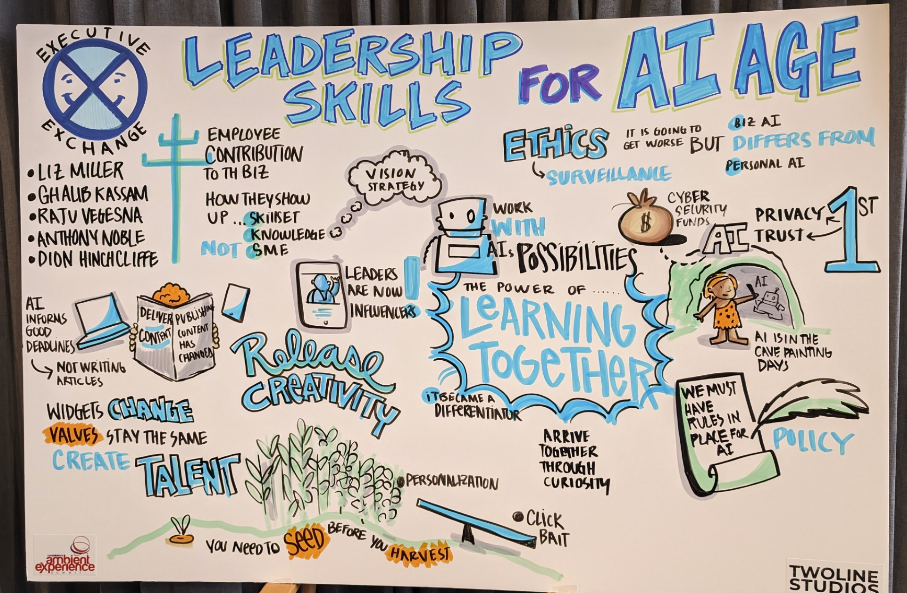 EXECUTIVE
EXCHANGE
LEADERSHIP
SKILLS
FOR AI AGE
•LIZ MILLER
•GHALIB KASSAM
•RAJU VEGESNA
•ANTHONY NOBLE
•DION HINCHCLIFFE
EMPLOYEE
CONTRIBUTION
TO TH BIZ
HOW THEY SHOW
UP... SKILLSET
KNOWLEDGE
NOT SME
VISION
STRATEGY
ETHICS
SURVEILLANCE
IT IS GOING TO
GET WORSE BUT
BIZ AI
DIFFERS FROM
PERSONAL AI
WORK
WITH
AIs POSSIBILITIES
CYBER
SECURITY
FUNDS
$
PRIVACY
TRUST
1ST
AI
AI
AI IS IN THE
CAVE PAINTING
DAYS
AI
INFORMS
GOOD
DEADLINES
NOT WRITING
ARTICLES
DELIVER
CONTENT
PUBLISHING
CONTENT
HAS
CHANGED
LEADERS
ARE NOW
INFLUENCERS
THE POWER OF ......
LEARNING
TOGETHER
IT BECAME A
DIFFERENTIATOR
RELEASE
CREATIVITY
WIDGETS CHANGE
VALUES STAY THE SAME
CREATE TALENT
•PERSONALIZATION
ARRIVE
TOGETHER
THROUGH
CURIOSITY
WE MUST
HAVE
RULES IN
PLACE FOR
AI
POLICY
•CLICK
BAIT
YOU NEED TO SEED BEFORE YOU HARVEST
ambient
experience
TWOLINE
STUDIOS